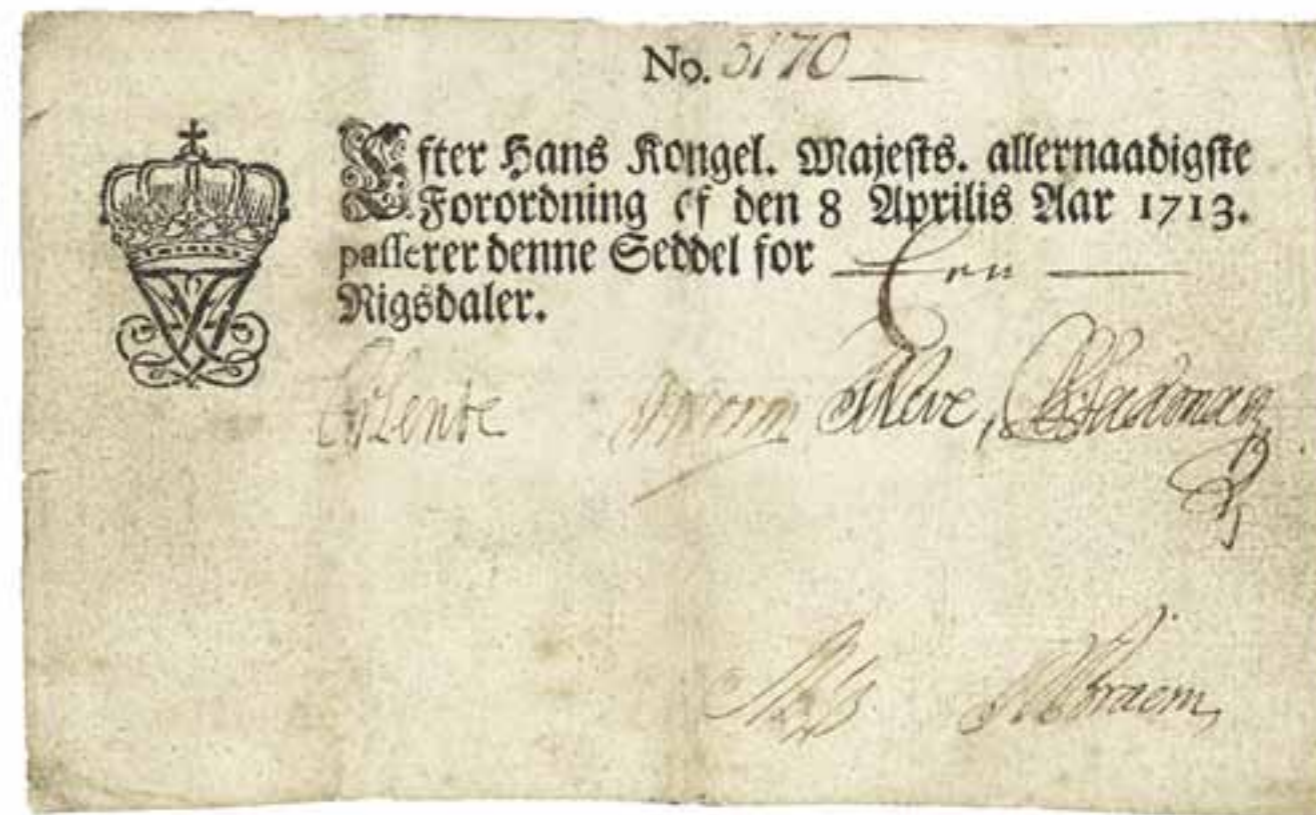 No. 3170
Efter Hans Kongel. Majests. allernaadigste
Forordning of den 8 Aprilis Aar 1713.
passerer denne Seddel for Een
Rigsdaler.